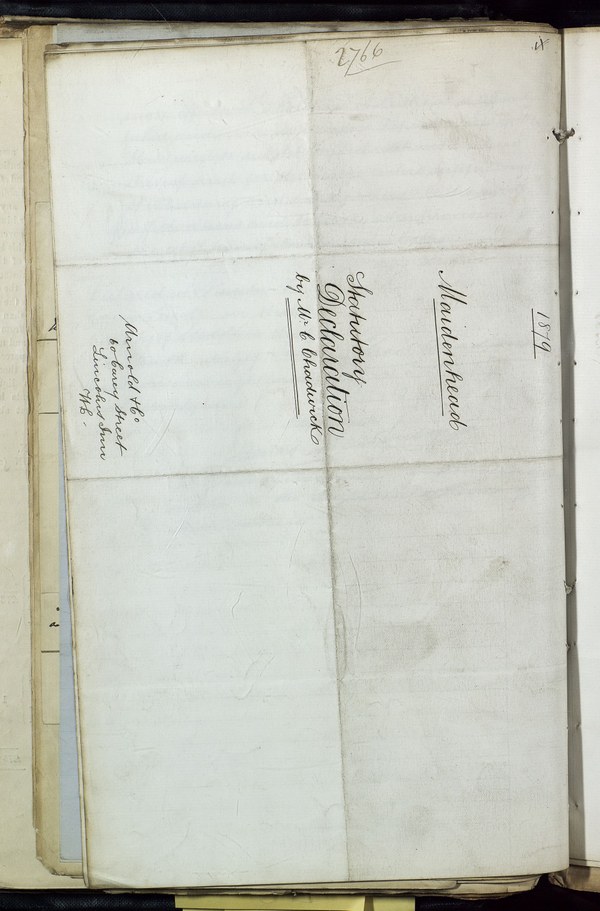 2766
1879
Maidenhead
Statutory
Declaration
by Mr C Chadwick
Arnold & Co
60 Carey Street
Lincolns Inn
WC.